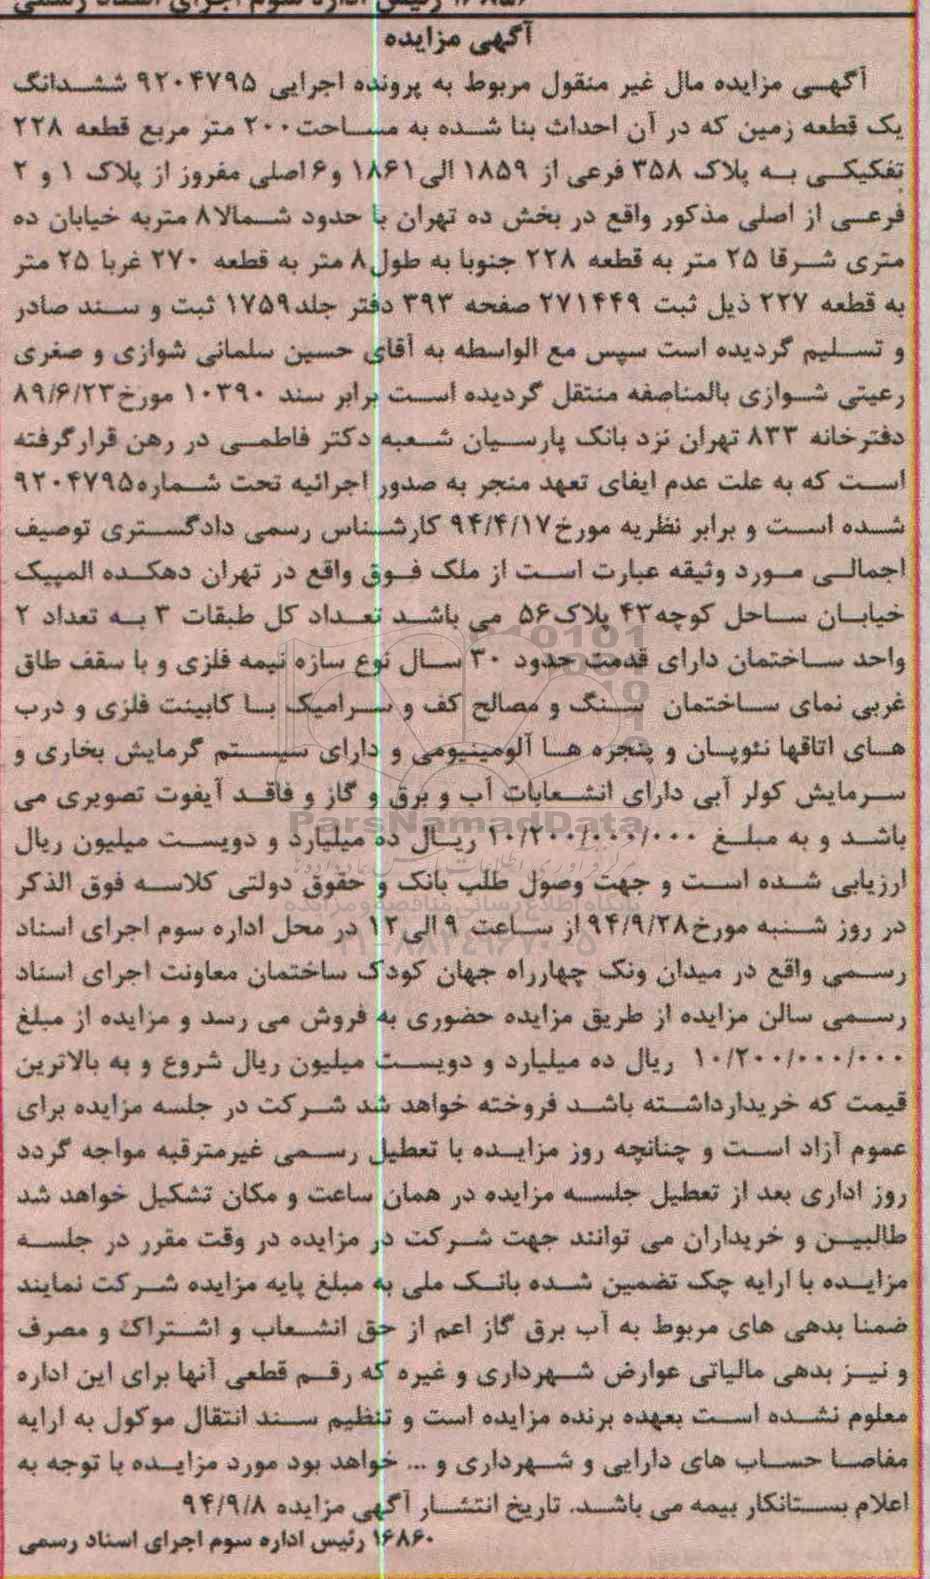 ۱۶۸۵۶ رئیس اداره سوم اجرای اسناد رسمی
آگهی مزایده
آگهـی مزایده مال غیر منقول مربوط به پرونده اجرایی ۹۲۰۴۷۹۵ ششـدانگ
یک قطعه زمین که در آن احداث بنا شـده به مساحت۲۰۰ متر مربع قطعه ۲۲۸
تفکیکـی بـه پلاک ۳۵۸ فرعی از ۱۸۵۹ الی۱۸۶۱ و۶ اصلی مفروز از پلاک ۱ و ۲
فرعـی از اصلی مذکور واقع در بخش ده تهران با حدود شـمالا۸ متربه خیابان ده
متری شـرقا ۲۵ متر به قطعه ۲۲۸ جنوبا به طول۸ متر به قطعه ۲۷۰ غربا ۲۵ متر
به قطعه ۲۲۷ ذیل ثبت ۲۷۱۴۴۹ صفحه ۳۹۳ دفتر جلد۱۷۵۹ ثبت و سـند صادر
و تسـلیم گردیده است سپس مع الواسطه به آقای حسین سلمانی شوازی و صغری
رعیتی شـوازی بالمناصفه منتقل گردیده اسـت برابر سند ۱۰۳۹۰ مورخ۸۹/۶/۲۳
دفترخانه ۸۳۳ تهران نزد بانک پارسـیان شـعبه دکتر فاطمـی در رهن قرارگرفته
اسـت که به علت عدم ایفای تعهد منجر به صدور اجرائیه تحت شـماره۹۲۰۴۷۹۵
شـده اسـت و برابر نظریه مورخ۹۴/۴/۱۷ کارشـناس رسمی دادگسـتری توصیف
اجمالـی مـورد وثیقه عبارت اسـت از ملک فـوق واقع در تهران دهکـده المپیک
خیابـان سـاحل کوچه۴۳ پلاک۵۶ می باشـد تعـداد کل طبقات ۳ بـه تعداد ۲
واحد سـاختمان دارای قدمت حدود ۳۰ سـال نوع سازه نیمه فلزی و با سقف طاق
غربی نمای سـاختمان سـنگ و مصالح کف و سـرامیک بـا کابینت فلزی و درب
هـای اتاقها نئوپـان و پنجره هـا آلومینیومی و دارای سیسـتم گرمایش بخاری و
سـرمایش کولر آبی دارای انشـعابات آب و برق و گاز و فاقـد آیفوت تصویری می
باشـد و به مبلـغ ۱۰/۲۰۰/۰۰۰/۰۰۰ ریـال ده میلیارد و دویسـت میلیون ریال
ارزیابی شـده اسـت و جهت وصول طلب بانک و حقوق دولتی کلاسـه فوق الذکر
در روز شـنبه مورخ۹۴/۹/۲۸ از سـاعت ۹ الی۱۲ در محل اداره سوم اجرای اسناد
رسـمی واقع در میدان ونک چهارراه جهان کودک ساختمان معاونت اجرای اسناد
رسـمی سالن مزایده از طریق مزایده حضوری به فروش می رسد و مزایده از مبلغ
۱۰/۲۰۰/۰۰۰/۰۰۰ ریال ده میلیارد و دویسـت میلیون ریال شروع و به بالاترین
قیمت که خریدارداشـته باشـد فروخته خواهد شد شـرکت در جلسه مزایده برای
عموم آزاد اسـت و چنانچه روز مزایـده با تعطیل رسـمی غیرمترقبه مواجه گردد
روز اداری بعد از تعطیل جلسـه مزایده در همان ساعت و مکان تشکیل خواهد شد
طالبیـن و خریداران می توانند جهت شـرکت در مزایده در وقت مقرر در جلسـه
مزایـده با ارایه چک تضمین شـده بانـک ملی به مبلغ پایه مزایده شـرکت نمایند
ضمنا بدهی های مربوط به آب برق گاز اعم از حق انشـعاب و اشـتراک و مصرف
و نیـز بدهی مالیاتی عوارض شـهرداری و غیره که رقـم قطعی آنها برای این اداره
معلوم نشـده اسـت بعهده برنده مزایده است و تنظیم سـند انتقال موکول به ارایه
مفاصـا حسـاب های دارایی و شـهرداری و ... خواهد بود مورد مزایـده با توجه به
اعلام بسـتانکار بیمه می باشـد. تاریخ انتشـار آگهی مزایده ۹۴/۹/۸
۱۶۸۶۰ رئیس اداره سوم اجرای اسناد رسمی
ParsNamadData
پایگاه اطلاع رسانی مناقصه و مزایده